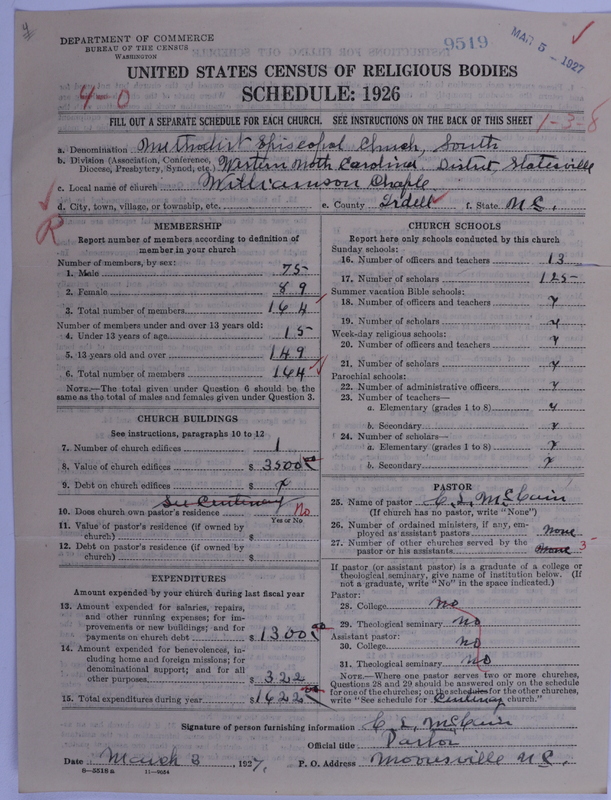 4
DEPARTMENT OF COMMERCE
BUREAU OF THE CENSUS
WASHINGTON
9519
MAR 5 - 1927
UNITED STATES CENSUS OF RELIGIOUS BODIES
4-0
SCHEDULE: 1926
FILL OUT A SEPARATE SCHEDULE FOR EACH CHURCH. SEE INSTRUCTIONS ON THE BACK OF THIS SHEET
1-3-8
a. Denomination Methodist Episcopal Church, South
b. Division (Association, Conference, Diocese, Presbytery, Synod, etc.) Western North Carolina District, Statesville
c. Local name of church Williamson Chaple
d. City, town, village, or township, etc. e. County Iredell f. State N C.
R
MEMBERSHIP
Report number of members according to definition of
member in your church
Number of members, by sex:
1. Male 75
2. Female 89
3. Total number of members 164
Number of members under and over 13 years old:
4. Under 13 years of age 15
5. 13 years old and over 149
6. Total number of members 164
NOTE.—The total given under Question 6 should be the
same as the total of males and females given under Question 3.
CHURCH BUILDINGS
See instructions, paragraphs 10 to 12
7. Number of church edifices 1
8. Value of church edifices $ 3500
9. Debt on church edifices $
See Centenary
10. Does church own pastor's residence No
Yes or No
11. Value of pastor's residence (if owned by
church) $
12. Debt on pastor's residence (if owned by
church) $
EXPENDITURES
Amount expended by your church during last fiscal year
13. Amount expended for salaries, repairs,
and other running expenses; for im-
provements or new buildings; and for
payments on church debt $ 1300
14. Amount expended for benevolences, in-
cluding home and foreign missions; for
denominational support; and for all
other purposes $ 322
15. Total expenditures during year $ 1622
CHURCH SCHOOLS
Report here only schools conducted by this church
Sunday schools:
16. Number of officers and teachers 13
17. Number of scholars 125
Summer vacation Bible schools:
18. Number of officers and teachers
19. Number of scholars
Week-day religious schools:
20. Number of officers and teachers
21. Number of scholars
Parochial schools:
22. Number of administrative officers
23. Number of teachers—
a. Elementary (grades 1 to 8)
b. Secondary
24. Number of scholars—
a. Elementary (grades 1 to 8)
b. Secondary
PASTOR
25. Name of pastor C. L. McCain
(If church has no pastor, write "None")
26. Number of ordained ministers, if any, em-
ployed as assistant pastors None
27. Number of other churches served by the
pastor or his assistants None 3
If pastor (or assistant pastor) is a graduate of a college or
theological seminary, give name of institution below. (If
not a graduate, write "No" in the space indicated.)
Pastor:
28. College no
29. Theological seminary no
Assistant pastor:
30. College no
31. Theological seminary no
NOTE.—Where one pastor serves two or more churches,
Questions 28 and 29 should be answered only on the schedule
for one of the churches; on the schedules for the other churches,
write "See schedule for Centenary church."
Signature of person furnishing information C. L. McCain
Official title Pastor
Date March 3, 1927. P. O. Address Mooresville N C.
8—5518 a 11—9664